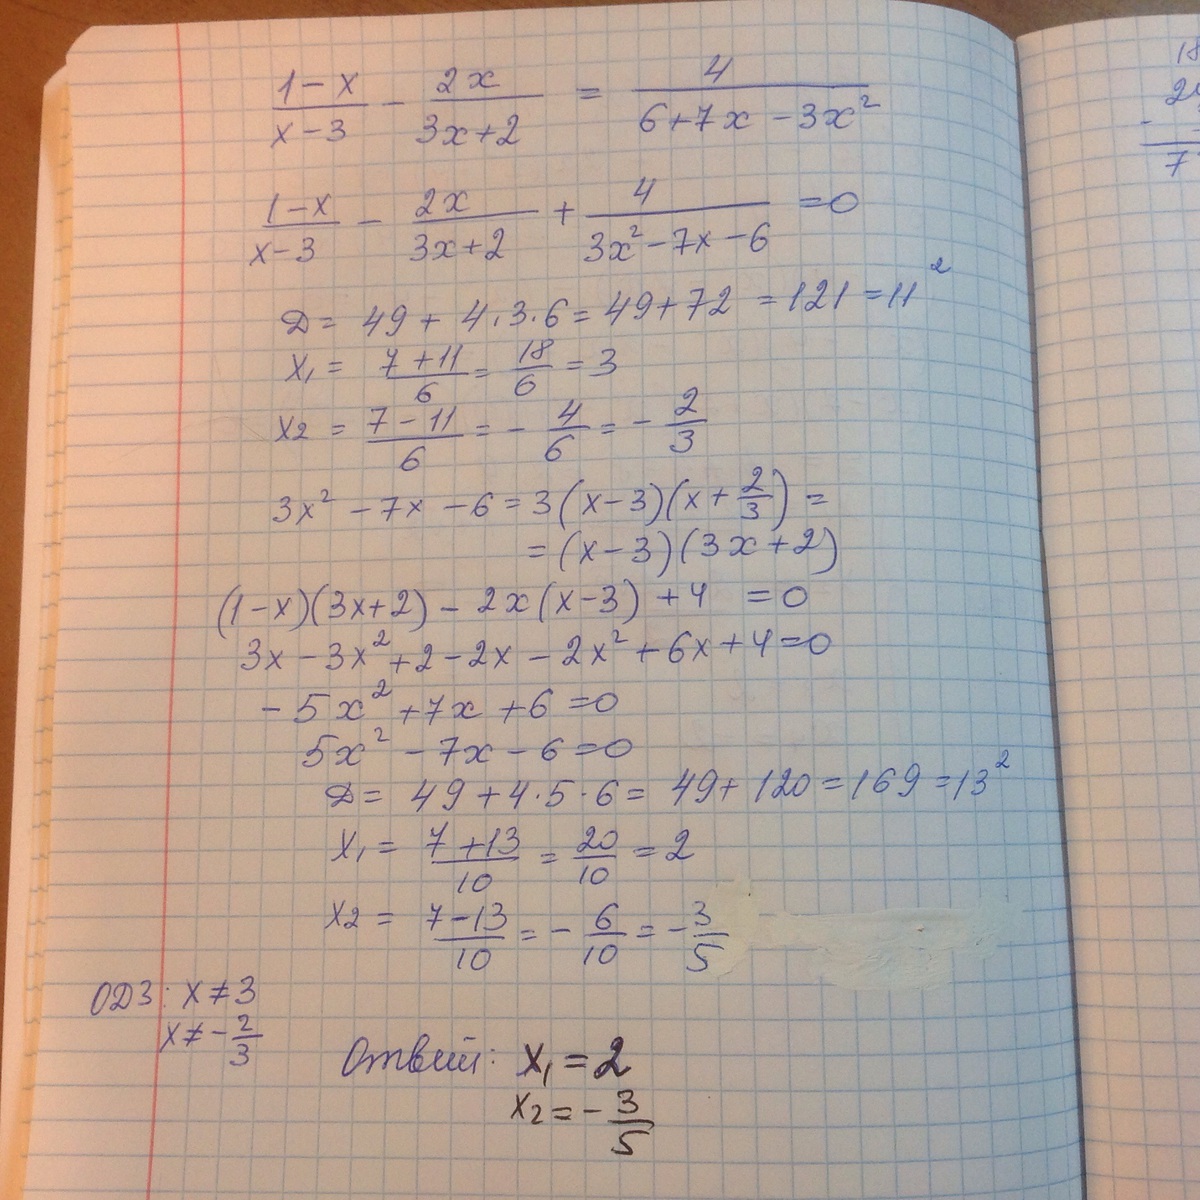 (1-x)/(x-3) - 2x/(3x+2) = 4/(6+7x-3x²)
(1-x)/(x-3) - 2x/(3x+2) + 4/(3x²-7x-6) =0
D= 49+ 4·3·6=49+72 =121=11²
x₁= (7+11)/6 = 18/6 =3
x2 = (7-11)/6 = - 4/6 = - 2/3
3x²-7x-6=3(x-3)(x+2/3)=
=(x-3)(3x+2)
(1-x)(3x+2)-2x(x-3)+4 =0
3x-3x²+2-2x-2x²+6x+4=0
-5x²+7x+6=0
5x²-7x-6=0
D= 49+4·5·6= 49+120=169=13²
x₁= (7+13)/10 = 20/10 =2
x2 = (7-13)/10 = - 6/10 = - 3/5
ОДЗ: x≠3
x≠-2/3
Ответ: x₁=2
x₂=-3/5
18
7